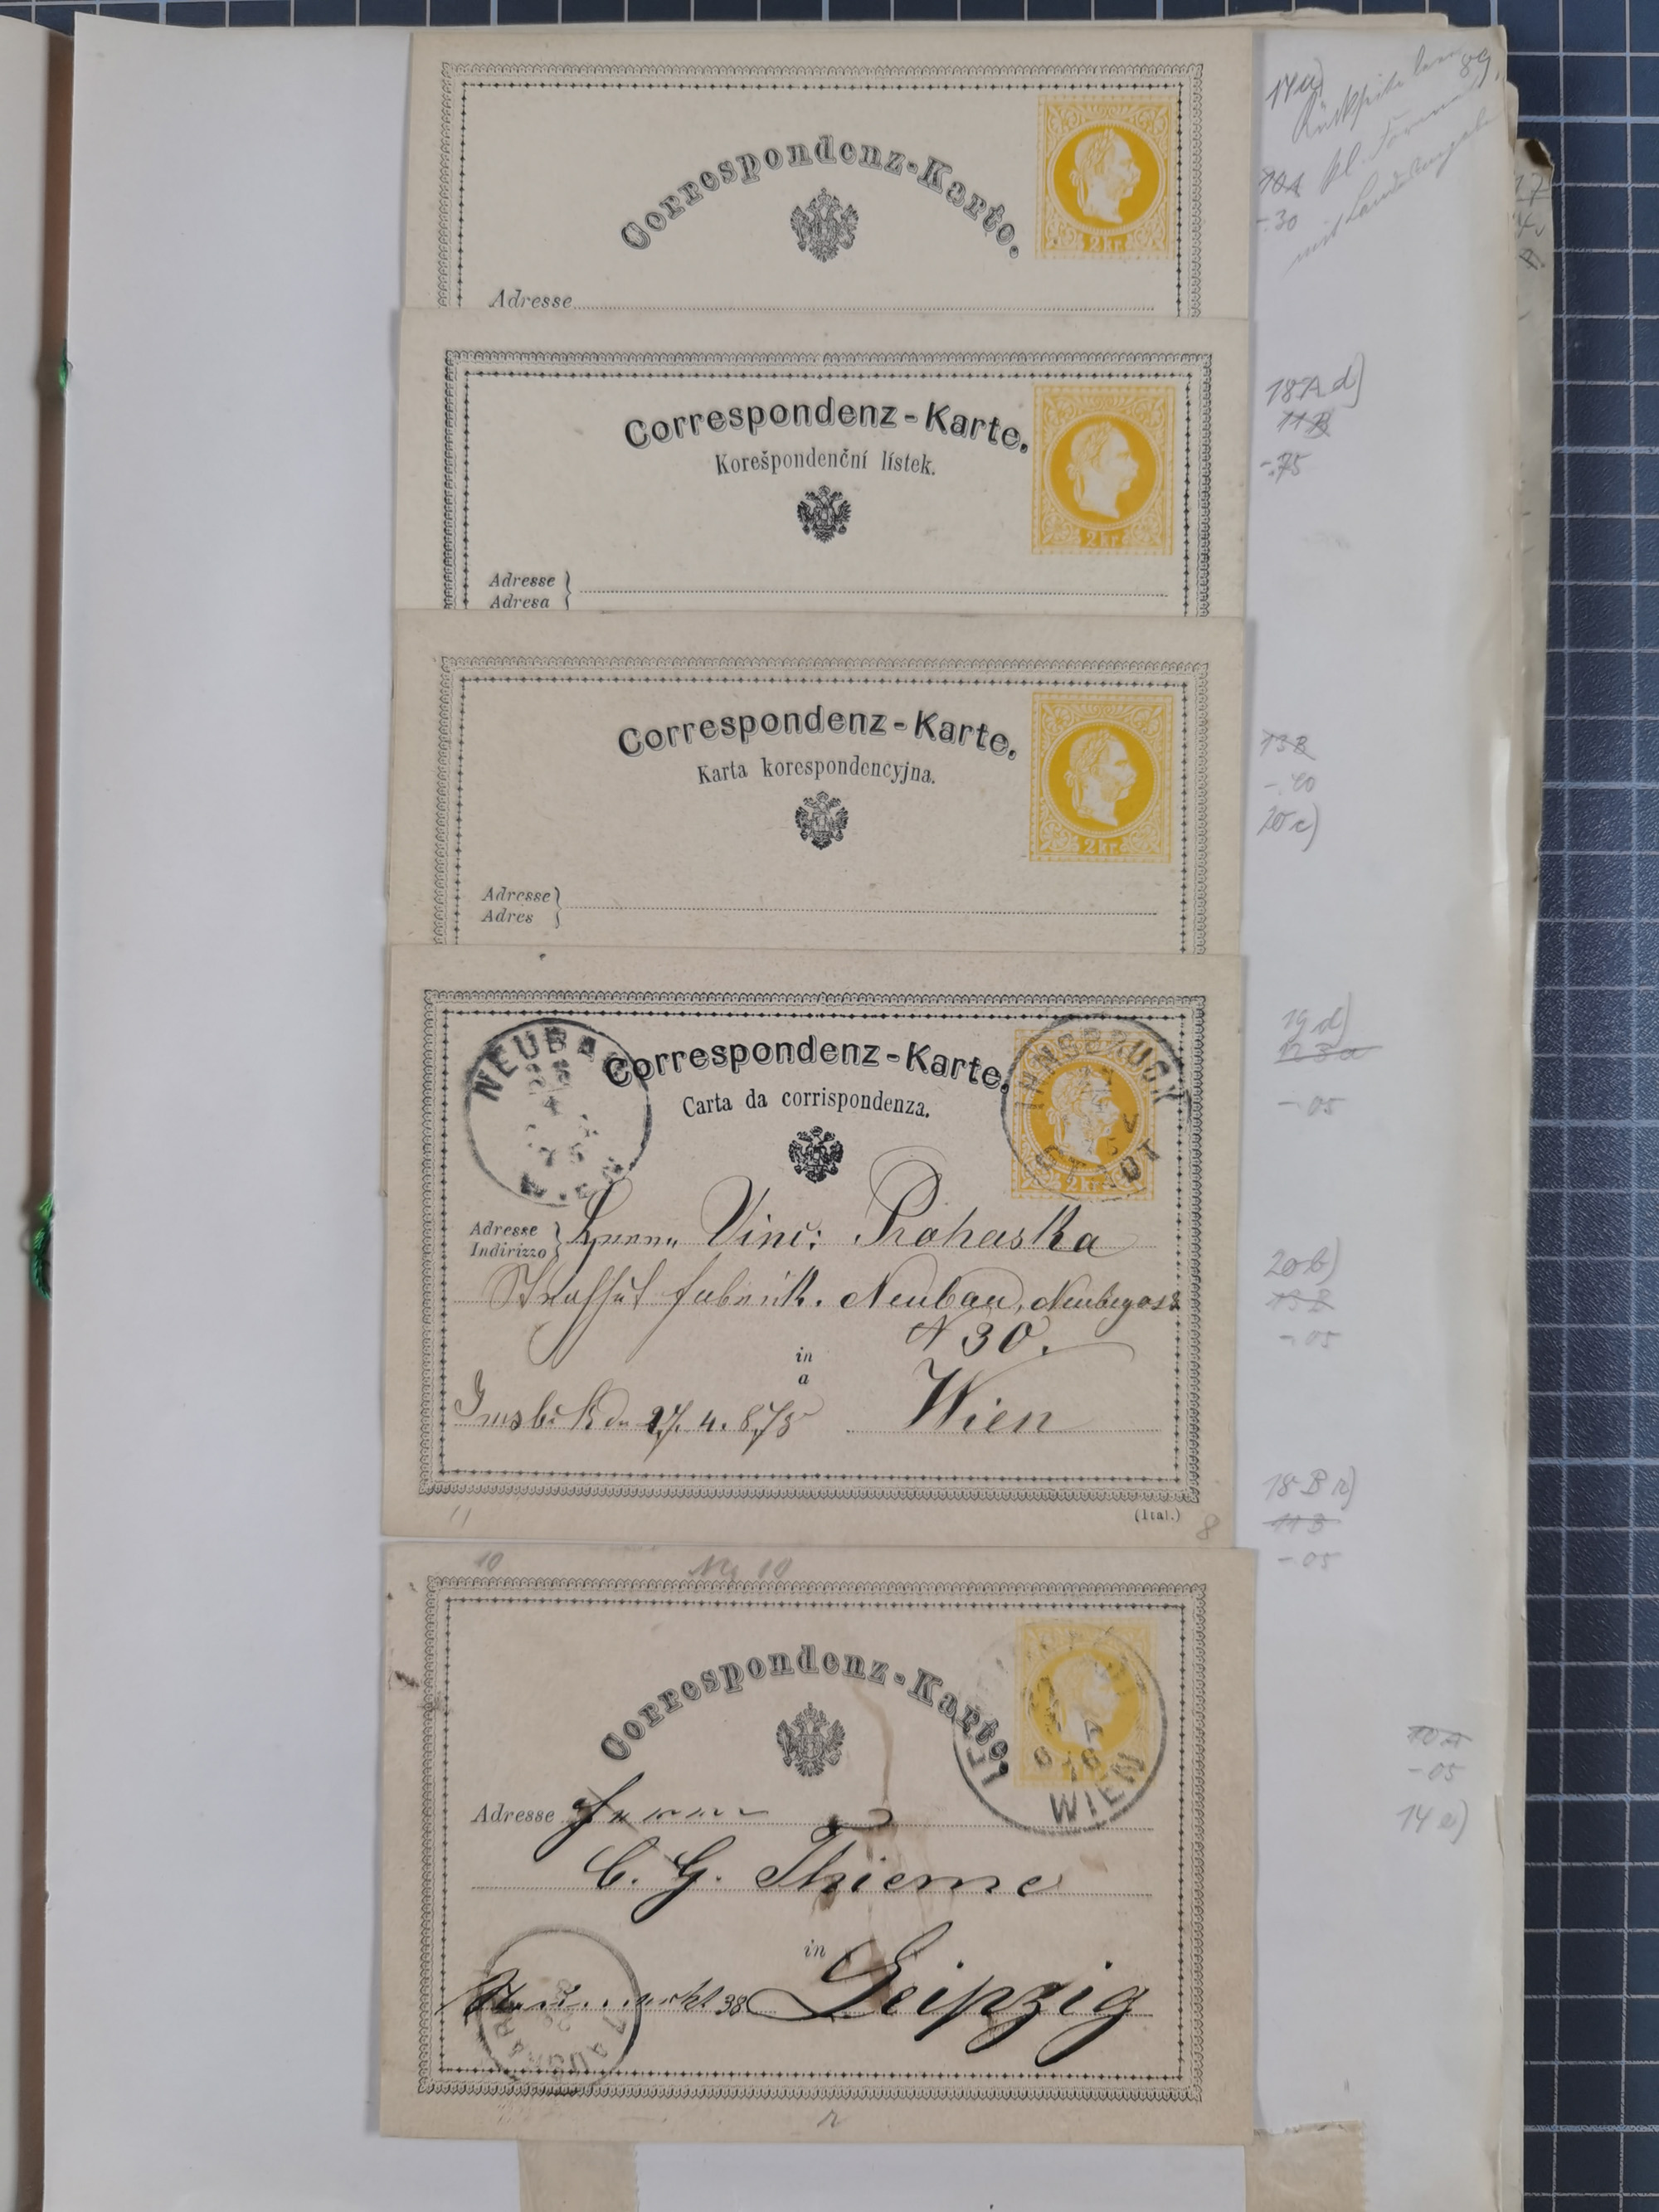 Correspondenz-Karte.
2 kr.
Adresse
14a)
89.
10A kl. Format
-.30
Correspondenz-Karte.
Korešpondenční lístek.
2 kr.
Adresse
Adresa
18A d)
11B
-.75
Correspondenz-Karte.
Karta korespondencyjna.
2 kr.
Adresse
Adres
13B
-.40
20c)
NEUBAU
WIEN
Correspondenz-Karte.
Carta da corrispondenza.
INNSBRUCK
STADT
2 kr.
Adresse
Indirizzo
Herrn Vinc: Prohaska
Strohhut fabrik. Neubau, Neubaugasse
N 30.
in
a
Wien
Innsbruck 27/4. 875
(Ital.)
11
8
19d)
-.05
20b)
13B
-.05
18B
11B
-.05
10
No 10
Correspondenz-Karte.
WIEN
Adresse Herrn
C. G. Thieme
in
Leipzig
38
10A
-.05
14e)